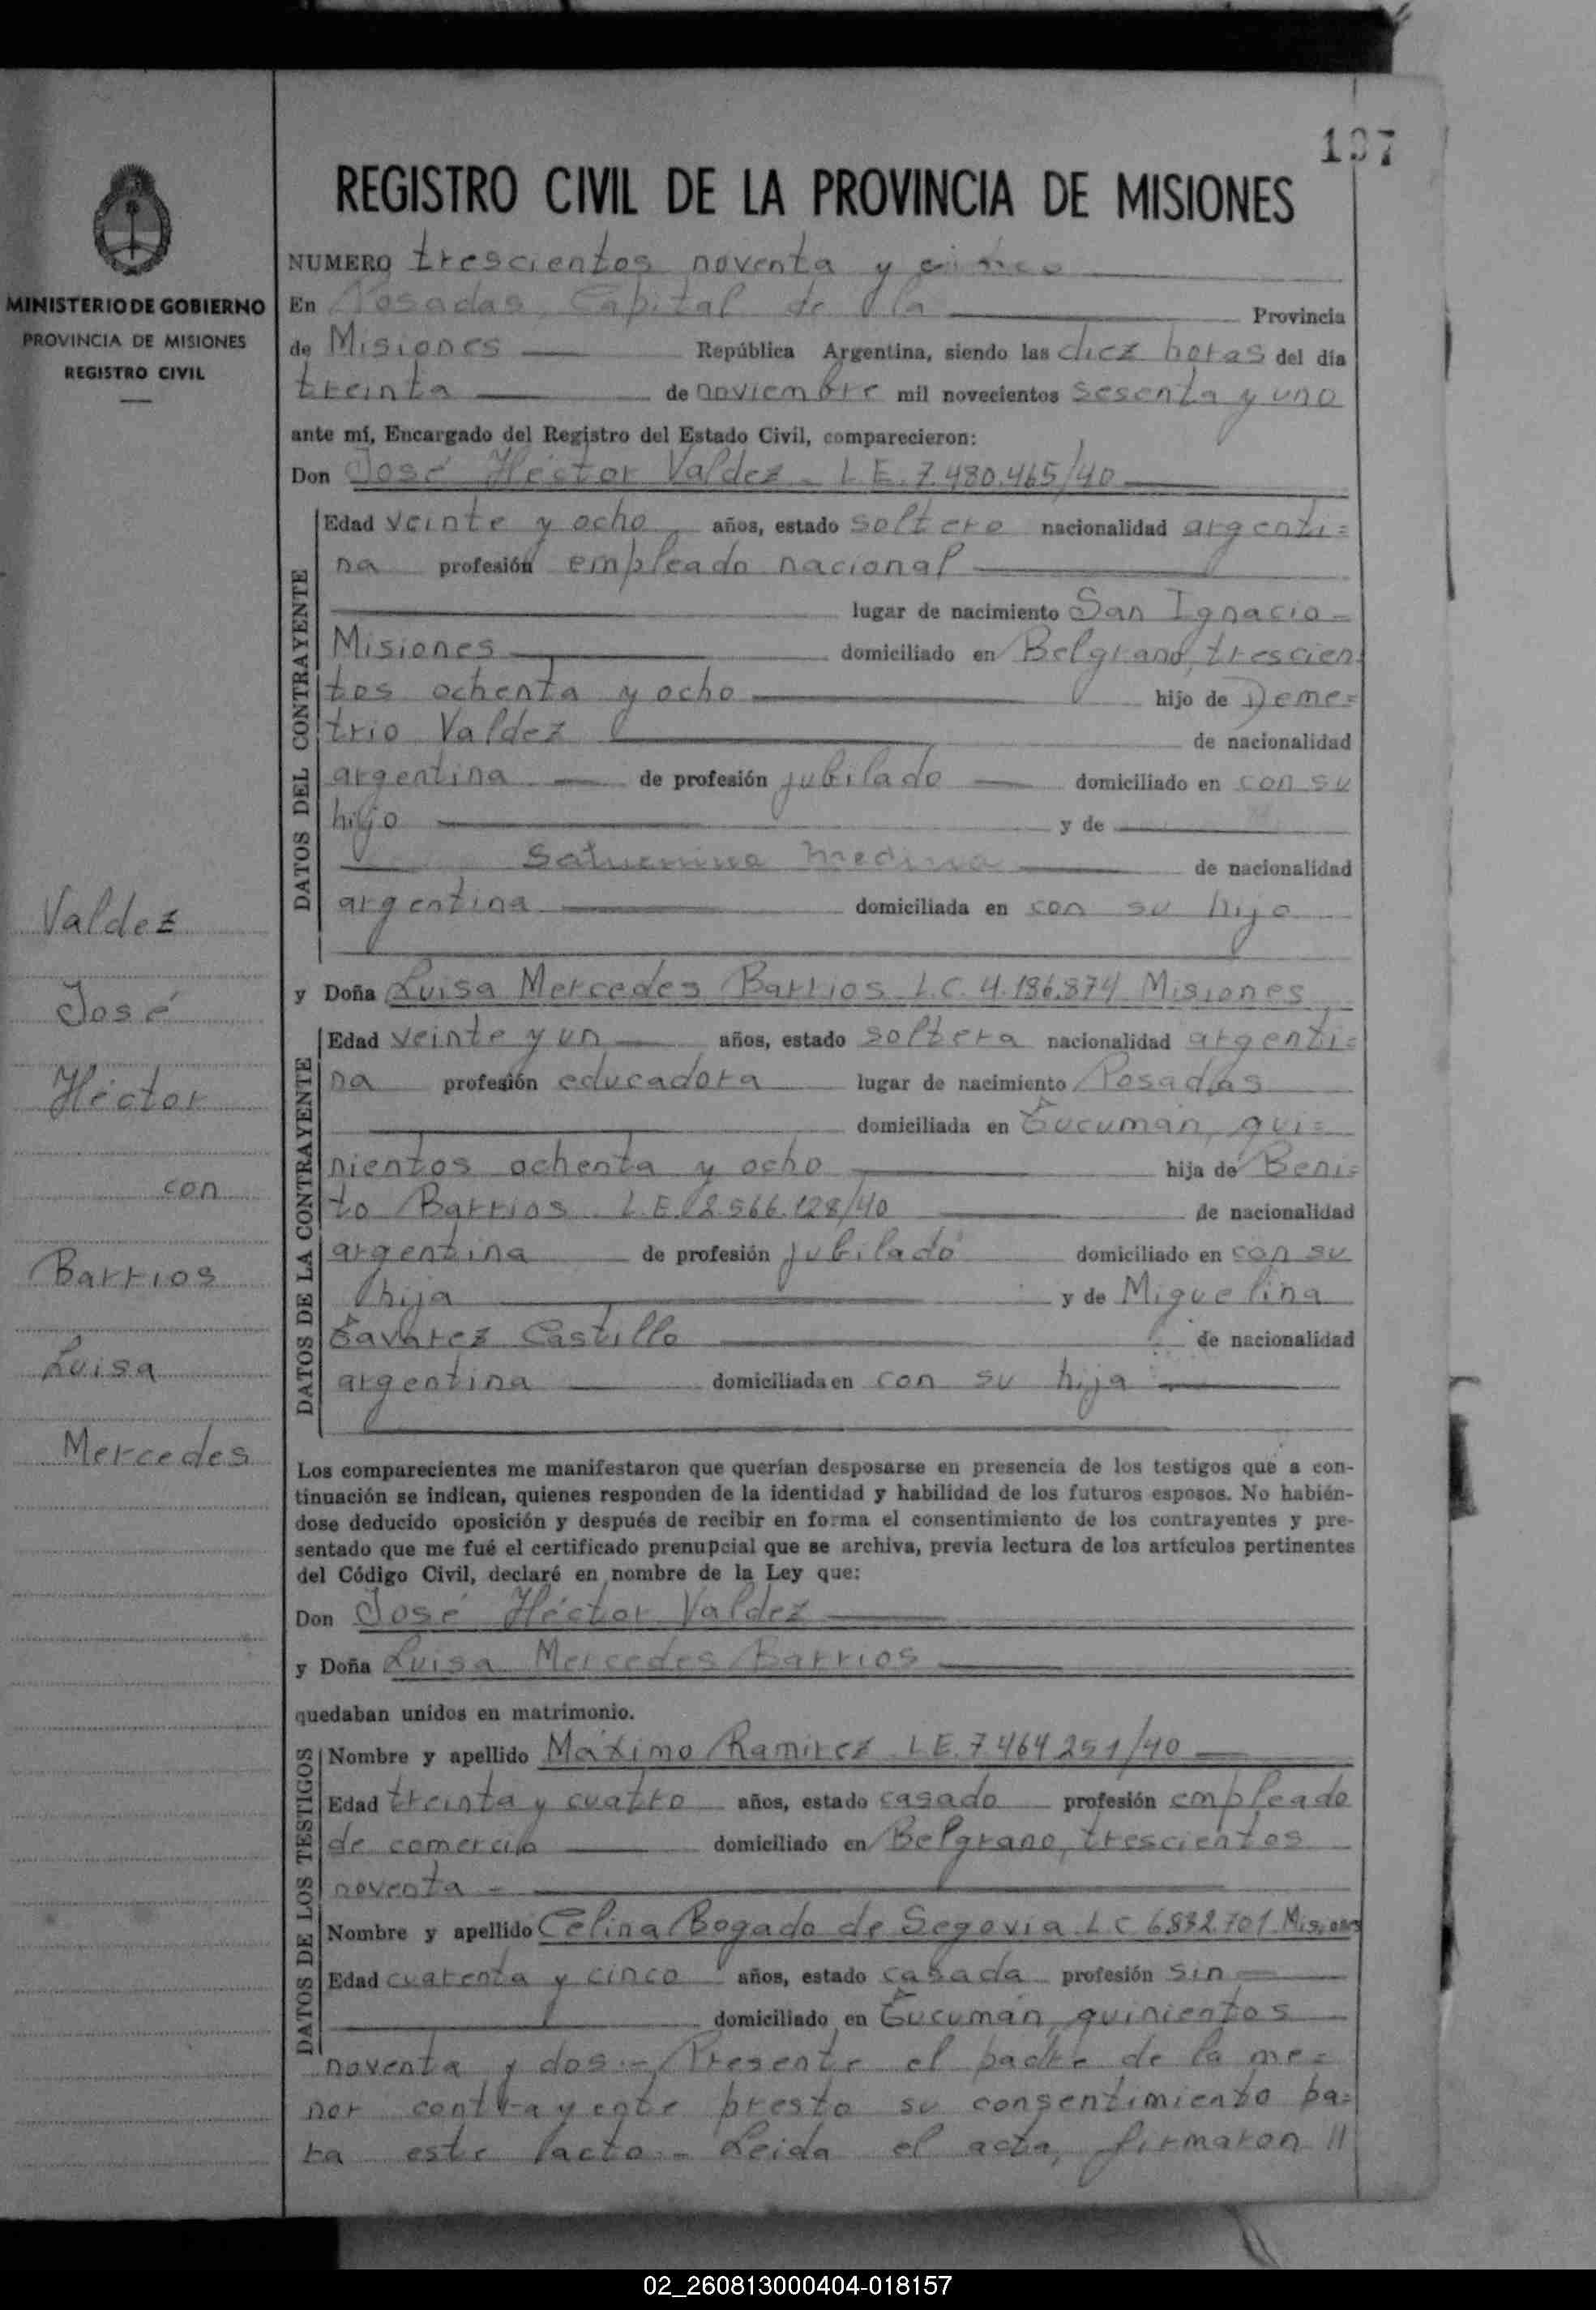 197
REGISTRO CIVIL DE LA PROVINCIA DE MISIONES
MINISTERIO DE GOBIERNO
PROVINCIA DE MISIONES
REGISTRO CIVIL
NUMERO trescientos noventa y cinco
En Posadas, Capital de la Provincia
de Misiones República Argentina, siendo las diez horas del día
treinta de noviembre mil novecientos sesenta y uno
ante mí, Encargado del Registro del Estado Civil, comparecieron:
Don José Héctor Valdez - L.E. 7.480.465/40
DATOS DEL CONTRAYENTE
Edad veinte y ocho años, estado soltero nacionalidad argenti=
na profesión empleado nacional
lugar de nacimiento San Ignacio -
Misiones domiciliado en Belgrano, trescien
tos ochenta y ocho hijo de Deme=
trio Valdez de nacionalidad
argentina de profesión jubilado domiciliado en con su
hijo y de
Saturnina Medina de nacionalidad
argentina domiciliada en con su hijo
y Doña Luisa Mercedes Barrios L.C. 4.186.874 Misiones
DATOS DE LA CONTRAYENTE
Edad veinte y un años, estado soltera nacionalidad argenti=
na profesión educadora lugar de nacimiento Posadas
domiciliada en Tucumán, qui=
nientos ochenta y ocho hija de Beni=
to Barrios L.E. 2.566.128/40 de nacionalidad
argentina de profesión jubilado domiciliado en con su
hija y de Miguelina
Tavarez Castillo de nacionalidad
argentina domiciliada en con su hija
Valdez
José
Héctor
con
Barrios
Luisa
Mercedes
Los comparecientes me manifestaron que querían desposarse en presencia de los testigos que a con-
tinuación se indican, quienes responden de la identidad y habilidad de los futuros esposos. No habién-
dose deducido oposición y después de recibir en forma el consentimiento de los contrayentes y pre-
sentado que me fué el certificado prenupcial que se archiva, previa lectura de los artículos pertinentes
del Código Civil, declaré en nombre de la Ley que:
Don José Héctor Valdez
y Doña Luisa Mercedes Barrios
quedaban unidos en matrimonio.
DATOS DE LOS TESTIGOS
Nombre y apellido Máximo Ramirez L.E. 7.464.251/40
Edad treinta y cuatro años, estado casado profesión empleado
de comercio domiciliado en Belgrano, trescientos
noventa -
Nombre y apellido Celina Bogado de Segovia L.C 6.832.701 Misiones
Edad cuarenta y cinco años, estado casada profesión sin
domiciliado en Tucumán, quinientos
noventa y dos.- Presente el padre de la me=
nor contrayente presta su consentimiento pa=
ra este acto.- Leida el acta, firmaron //
02_260813000404-018157